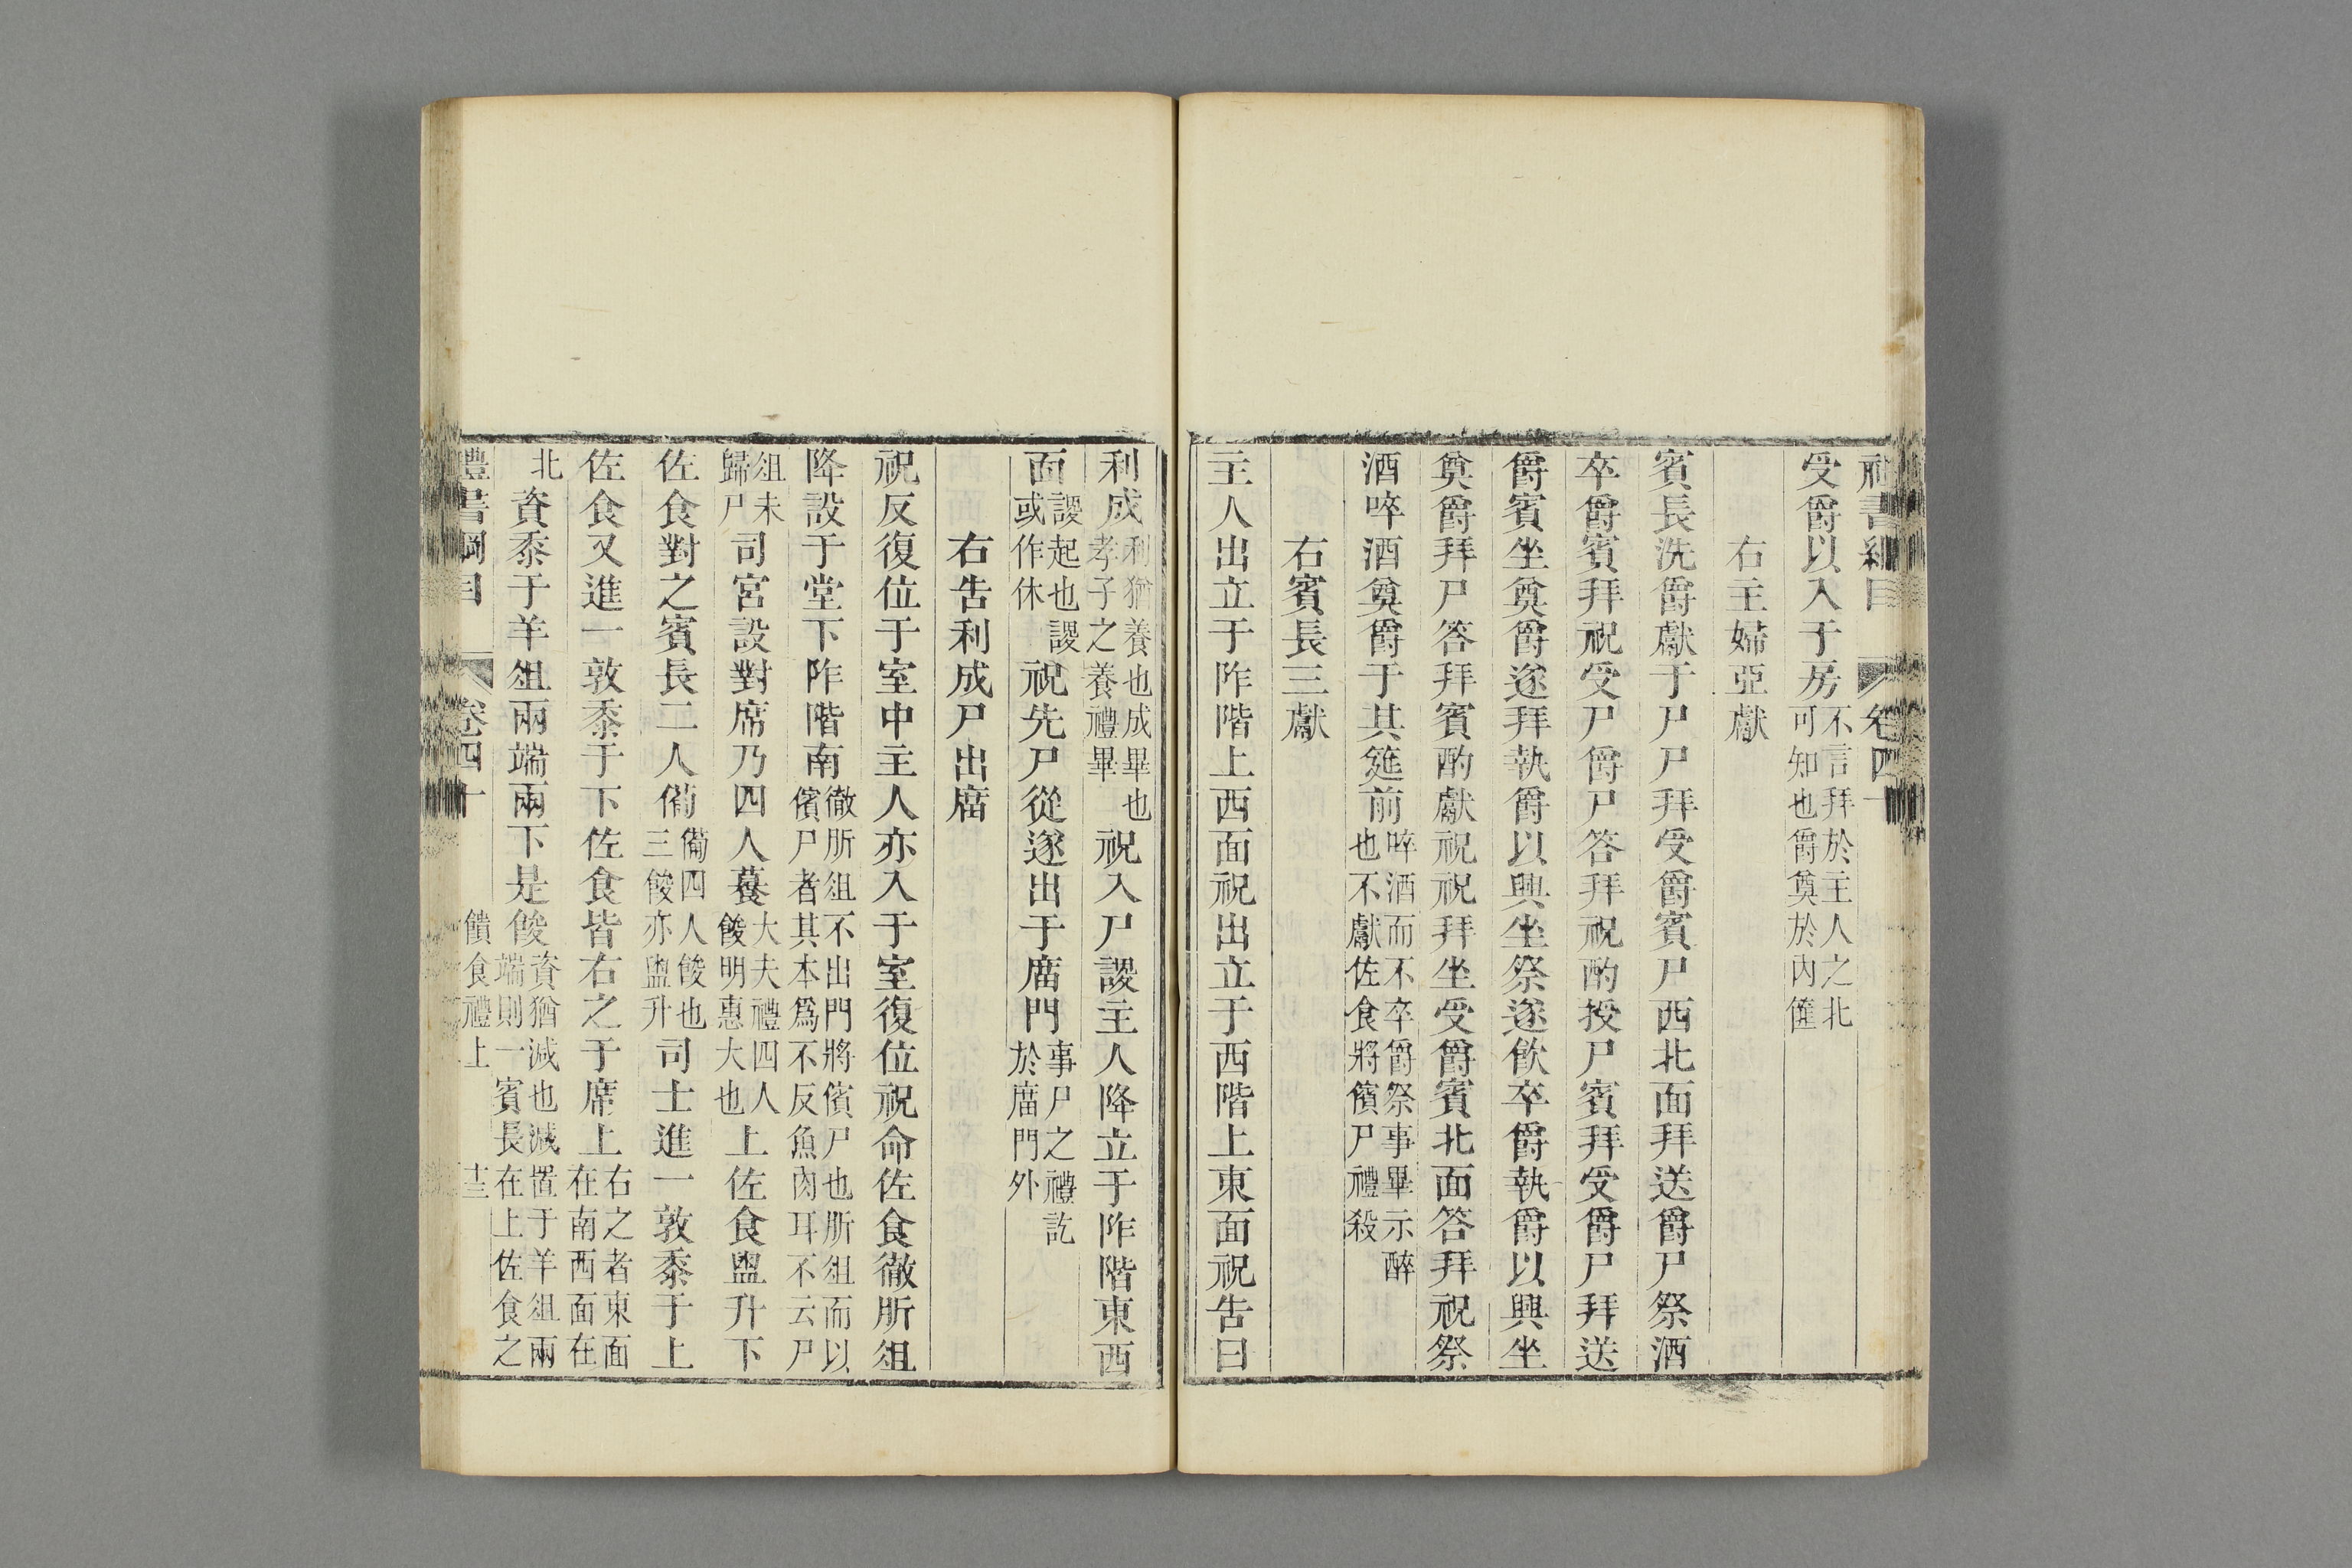 禮書綱目 卷四十
受爵以入于房不言拜於主人之北可知也爵奠於內篚
右主婦亞獻
賓長洗爵獻于尸尸拜受爵賓尸西北面拜送爵尸祭酒
卒爵賓拜祝受尸爵尸答拜祝酌授尸賓拜受爵尸拜送
爵賓坐奠爵遂拜執爵以興坐祭遂飲卒爵執爵以興坐
奠爵拜尸答拜賓酌獻祝祝拜坐受爵賓北面答拜祝祭
酒啐酒奠爵于其筵前啐酒而不卒爵祭事畢示醉也不獻佐食將儐尸禮殺
右賓長三獻
主人出立于阼階上西面祝出立于西階上東面祝告曰
利成利猶養也成畢也孝子之養禮畢祝入尸謖主人降立于阼階東西
面謖起也謖或作休祝先尸從遂出于庿門事尸之禮訖於庿門外
右告利成尸出庿
祝反復位于室中主人亦入于室復位祝命佐食徹肵俎
降設于堂下阼階南徹肵俎不出門將儐尸也肵俎而以儐尸者其本爲不反魚肉耳不云尸
俎未歸尸司宮設對席乃四人䕩大夫禮四人餕明惠大也上佐食盥升下
佐食對之賓長二人僃僃四人餕也三餕亦盥升司士進一敦黍于上
佐食又進一敦黍于下佐食皆右之于席上右之者東面在南西面在
北資黍于羊俎兩端兩下是餕資猶減也減置于羊俎兩端則一賓長在上佐食之
禮書綱目 卷四十 饋食禮上 十三